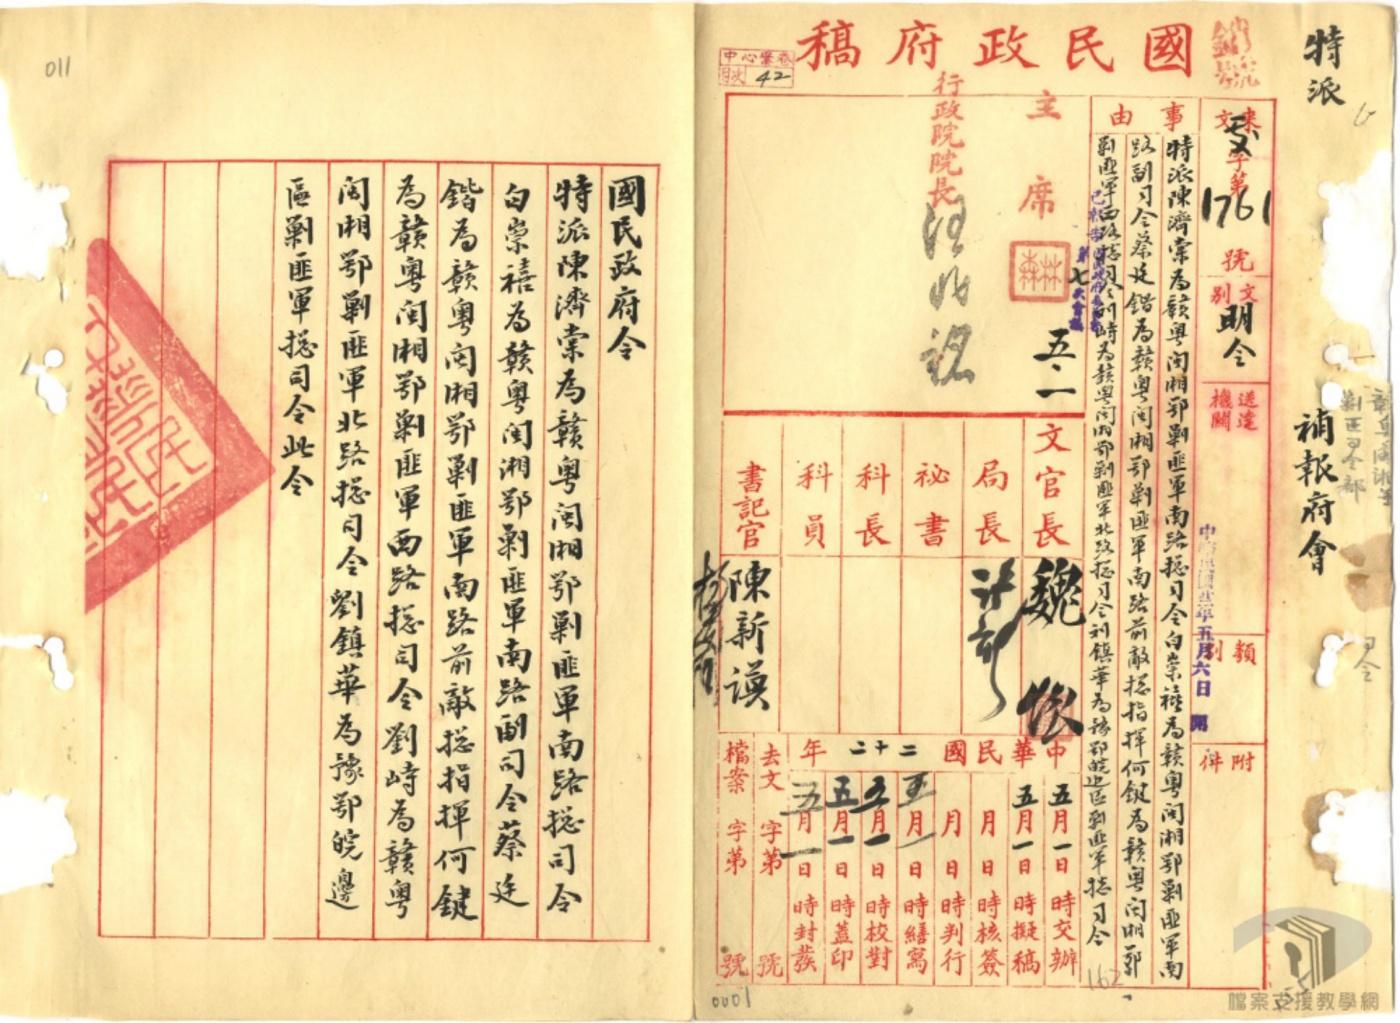 特派
補報府會
國民政府稿
卷案心中
次目
42
來文 字第
1761
號
文別
明令
送達機關
類別
附件
中華民國廿二年五月六日
事由
特派陳濟棠為贛粵閩湘鄂剿匪軍南路總司令白崇禧為贛粵閩湘鄂剿匪軍南
路副司令蔡廷鍇為贛粵閩湘鄂剿匪軍南路前敵總指揮何鍵為贛粵閩湘鄂
剿匪軍西路總司令劉峙為贛粵閩湘鄂剿匪軍北路總司令劉鎮華為豫鄂皖邊區剿匪軍總司令
主席
林森
五、一
行政院院長
汪兆銘
文官長
局長
祕書
科長
科員
書記官
魏懷
許靜
陳新謨
中華民國二十二年
五月一日時交辦
五月一日時擬稿
月日時核簽
月日時判行
五月一日時繕寫
五月一日時校對
五月一日時蓋印
五月一日時封發
去文 字第 號
檔案 字第 號
162
0001
011
國民政府令
特派陳濟棠為贛粵閩湘鄂剿匪軍南路總司令
白崇禧為贛粵閩湘鄂剿匪軍南路副司令蔡廷
鍇為贛粵閩湘鄂剿匪軍南路前敵總指揮何鍵
為贛粵閩湘鄂剿匪軍西路總司令劉峙為贛粵
閩湘鄂剿匪軍北路總司令劉鎮華為豫鄂皖邊
區剿匪軍總司令此令
檔案支援教學網